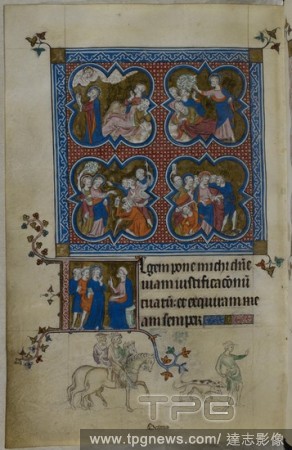 Legem pone michi dñe
uiam iustificacionũ
tuarũ: et exquiram me
am semper
TPG
www.tpgnews.com / 達志影像